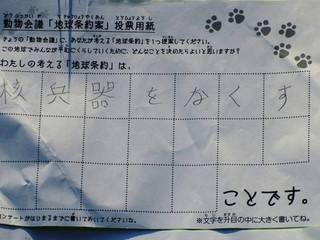 動物会議「地球条約案」投票用紙
きょうの「動物会議」に、あなたが考える「地球条約」を1つ提案してください。
この地球でみんなが平和にくらしていくために、どんなことを決めたらよいと思いますか?
わたしの考える「地球条約」は、
核兵器をなくす
ことです。
※文字を升目の中に大きく書いてね。